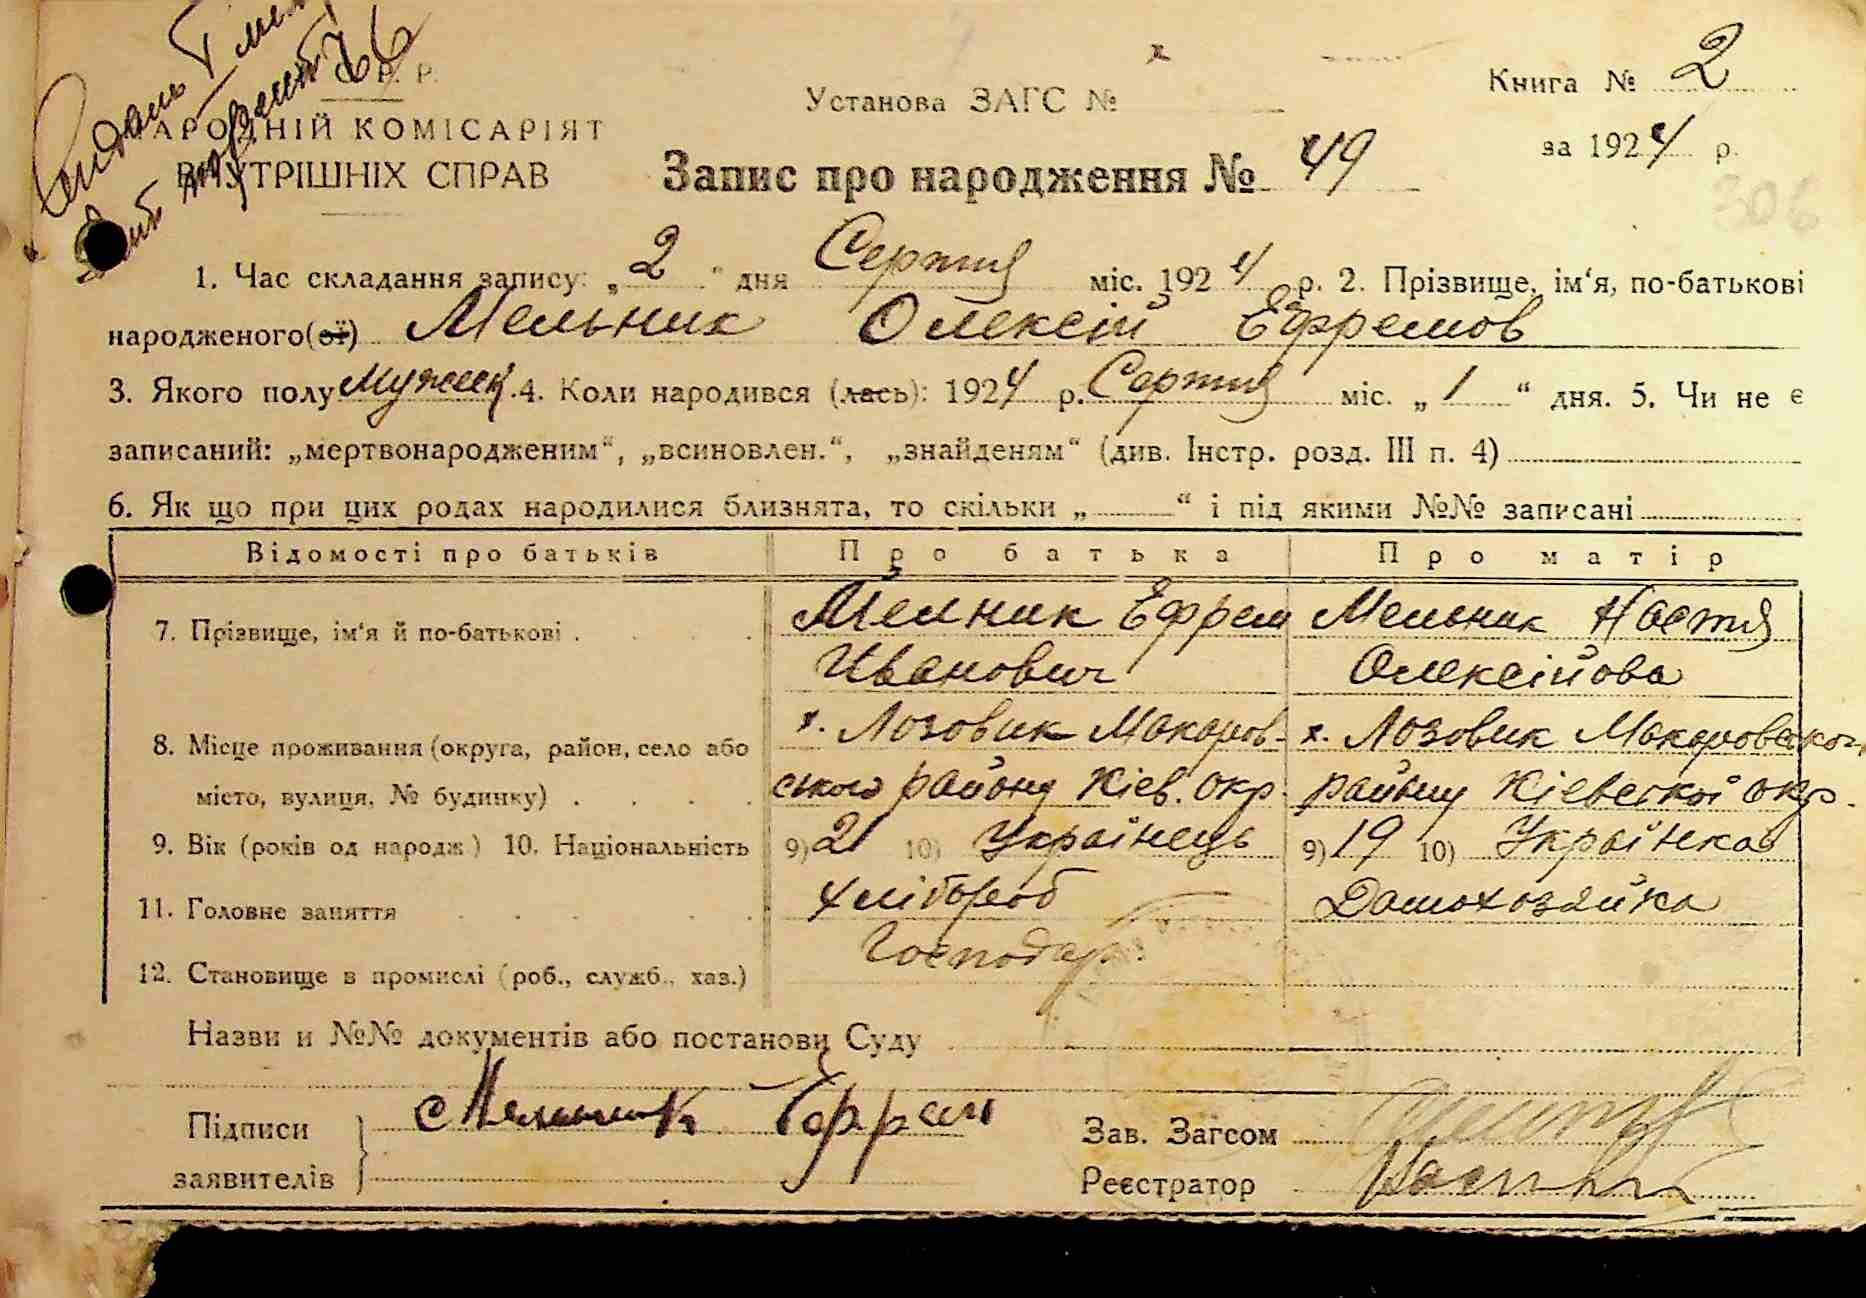 Р. Р.
Установа ЗАГС №
Книга № 2
НАРОДНІЙ КОМІСАРІЯТ
ВНУТРІШНІХ СПРАВ
за 1924 р.
Запис про народження № 49
306
1. Час складання запису: „2“ дня Сертня міс. 1924 р. 2. Прізвище, ім‘я, по-батькові
народженого(ої) Мельник Олексій Ефремов
3. Якого полу Мужеск. 4. Коли народився (лась): 1924 р. Сертня міс. „1“ дня. 5. Чи не є
записаний: „мертвонародженим“, „всиновлен.“, „знайденям“ (див. Інстр. розд. III п. 4)
6. Як що при цих родах народилися близнята, то скільки „ “ і під якими №№ записані
Відомості про батьків Про батька Про матір
7. Прізвище, ім‘я й по-батькові . . . . Мелник Ефрем Мельник Настя
Иванович Олексійова
8. Місце проживання (округа, район, село або х. Лозовик Макаров- х. Лозовик Макаровского
місто, вулиця, № будинку) . . . . ського району Кіев. окр. району Кіевскої окр.
9. Вік (років од народж.) 10. Національність 9) 21 10) Українець 9) 19 10) Українка
11. Головне заняття . . . . . хлібороб Домохозяйка
12. Становище в промислі (роб., служб., хаз.) Господар.
Назви и №№ документів або постанови Суду
Підписи
заявителів
Мельник Ефрем
Зав. Загсом
Реєстратор